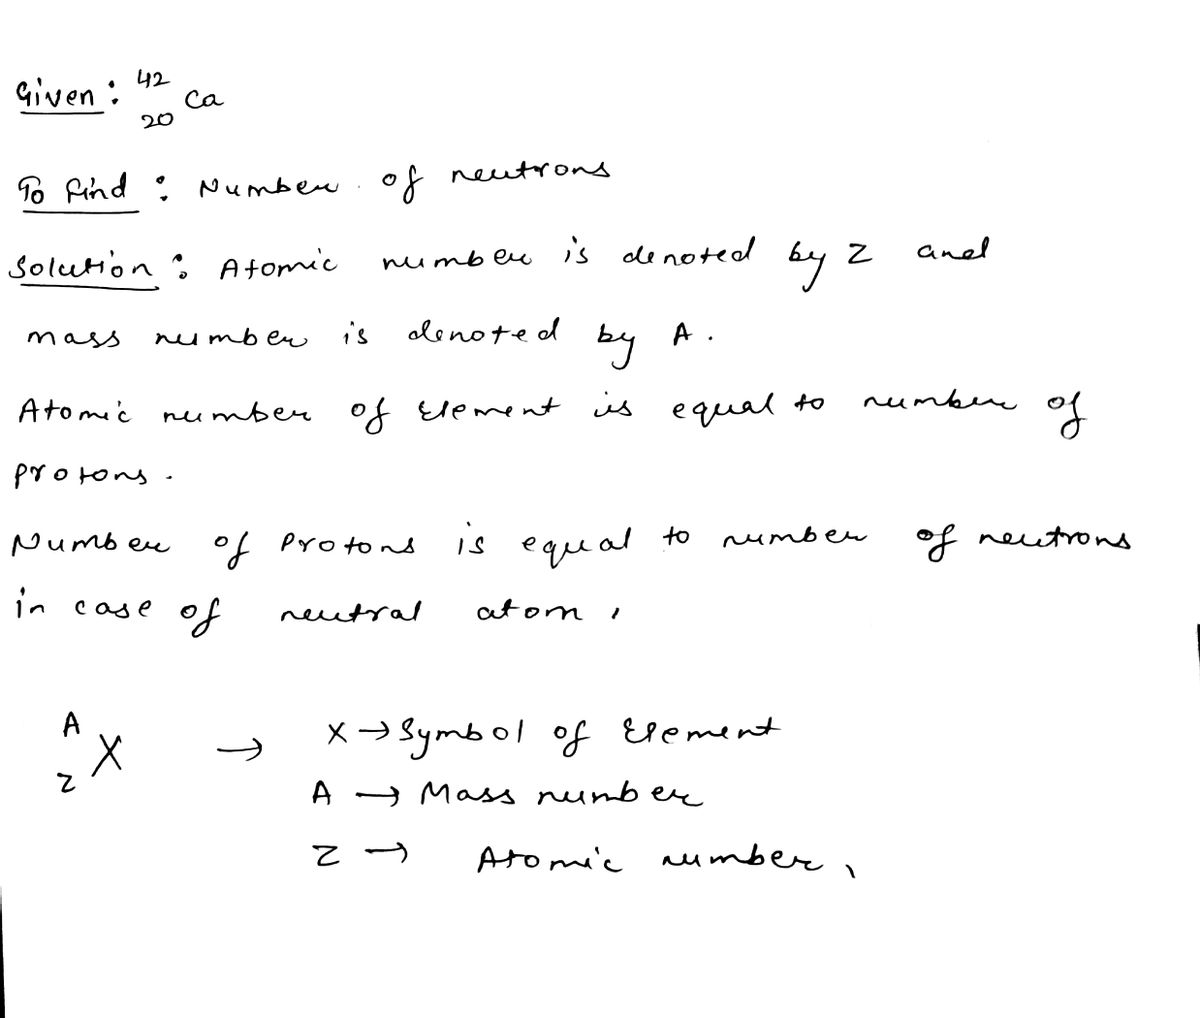 Given : ⁴²₂₀ Ca
To find : Number of neutrons
Solution : Atomic number is denoted by Z and
mass number is denoted by A.
Atomic number of Element is equal to number of
protons.
Number of protons is equal to number of neutrons
in case of neutral atom,
ᴬ_Z X → X → Symbol of Element
A → Mass number
Z → Atomic number,